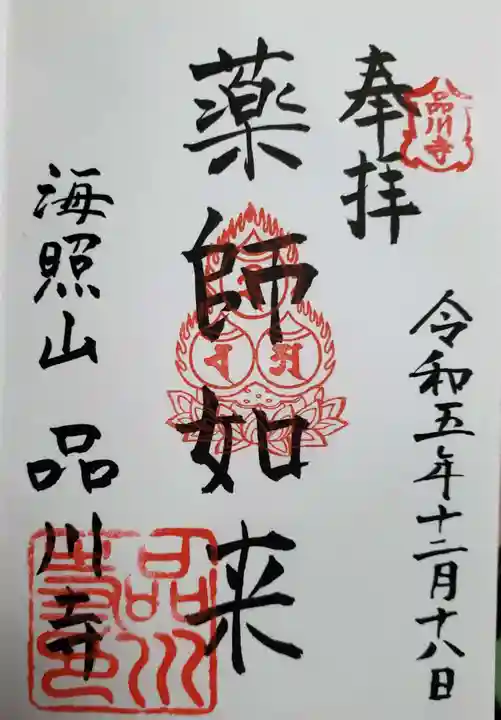 品川寺
奉拝
令和五年十二月十八日
薬師如来
海照山 品川寺